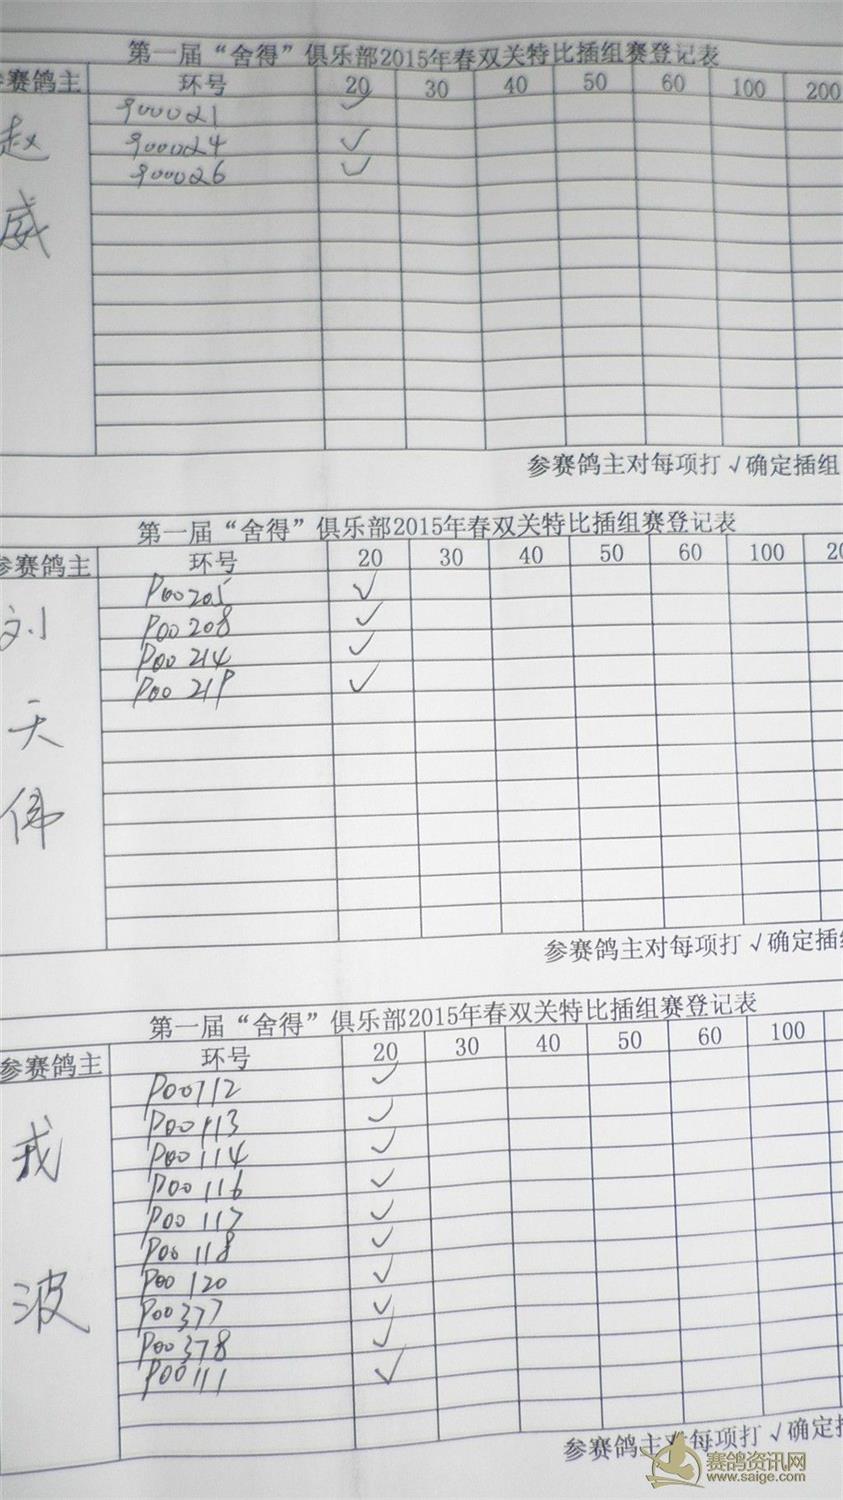 第一届“舍得”俱乐部2015年春双关特比插组赛登记表
参赛鸽主 环号 20 30 40 50 60 100 200
赵威
900021 ✓
900024 ✓
900026 ✓
参赛鸽主对每项打√确定插组
第一届“舍得”俱乐部2015年春双关特比插组赛登记表
参赛鸽主 环号 20 30 40 50 60 100 20
刘天伟
P00205 ✓
P00208 ✓
P00214 ✓
P00219 ✓
参赛鸽主对每项打√确定插组
第一届“舍得”俱乐部2015年春双关特比插组赛登记表
参赛鸽主 环号 20 30 40 50 60 100
戎波
P00112 ✓
P00113 ✓
P00114 ✓
P00116 ✓
P00117 ✓
P00118 ✓
P00120 ✓
P00377 ✓
P00378 ✓
P00111 ✓
参赛鸽主对每项打√确定插
赛鸽资讯网
www.saige.com